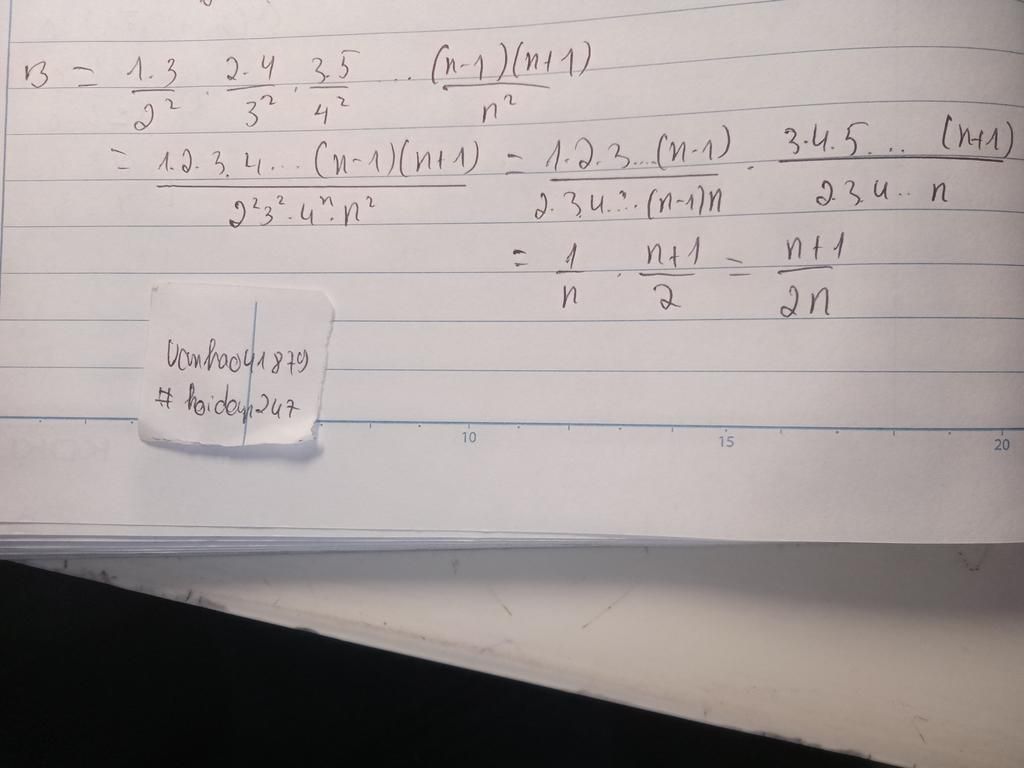 B = 1.3/2² . 2.4/3² . 3.5/4² ... (n-1)(n+1)/n²
= 1.2.3.4...(n-1)(n+1)/2²3².4ⁿ.n² = 1.2.3...(n-1)/2.3.4...(n-1)n . 3.4.5... (n+1)/2.3.4.. n
= 1/n . n+1/2 = n+1/2n
Vanhao41879
# hoidap247
10 15 20